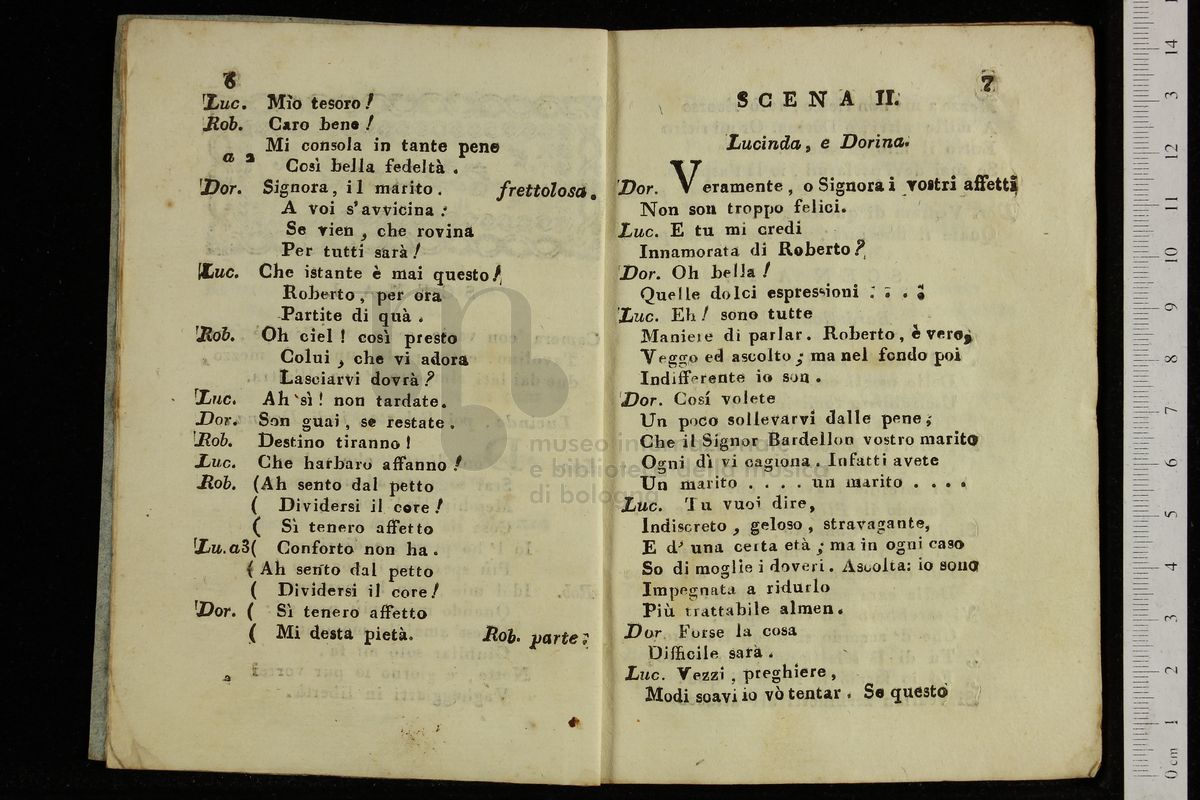 6
Luc. Mio tesoro!
Rob. Caro bene!
Mi consola in tante pene
a 2 Così bella fedeltà.
Dor. Signora, il marito. frettolosa.
A voi s'avvicina:
Se vien, che rovina
Per tutti sarà!
Luc. Che istante è mai questo!
Roberto, per ora
Partite di quà.
Rob. Oh ciel! così presto
Colui, che vi adora
Lasciarvi dovrà?
Luc. Ah sì! non tardate.
Dor. Son guai, se restate.
Rob. Destino tiranno!
Luc. Che harbaro affanno!
Rob. (Ah sento dal petto
( Dividersi il core!
( Sì tenero affetto
Lu.a3( Conforto non ha.
( Ah sento dal petto
( Dividersi il core!
Dor. ( Sì tenero affetto
( Mi desta pietà. Rob. parte.
7
SCENA II.
Lucinda, e Dorina.
Dor. Veramente, o Signora i vostri affetti
Non son troppo felici.
Luc. E tu mi credi
Innamorata di Roberto?
Dor. Oh bella!
Quelle dolci espressioni . . . .
Luc. Eh! sono tutte
Maniere di parlar. Roberto, è vero,
Veggo ed ascolto; ma nel fondo poi
Indifferente io son.
Dor. Cosí volete
Un poco sollevarvi dalle pene;
Che il Signor Bardellon vostro marito
Ogni dì vi cagiona. Infatti avete
Un marito . . . . un marito . . . .
Luc. Tu vuoi dire,
Indiscreto, geloso, stravagante,
E d' una certa età; ma in ogni caso
So di moglie i doveri. Ascolta: io sono
Impegnata a ridurlo
Più trattabile almen.
Dor Forse la cosa
Difficile sarà.
Luc. Vezzi, preghiere,
Modi soavi io vò tentar. Se questo
museo internazionale
e biblioteca della musica
di bologna
0 cm 1 2 3 4 5 6 7 8 9 10 11 12 13 14